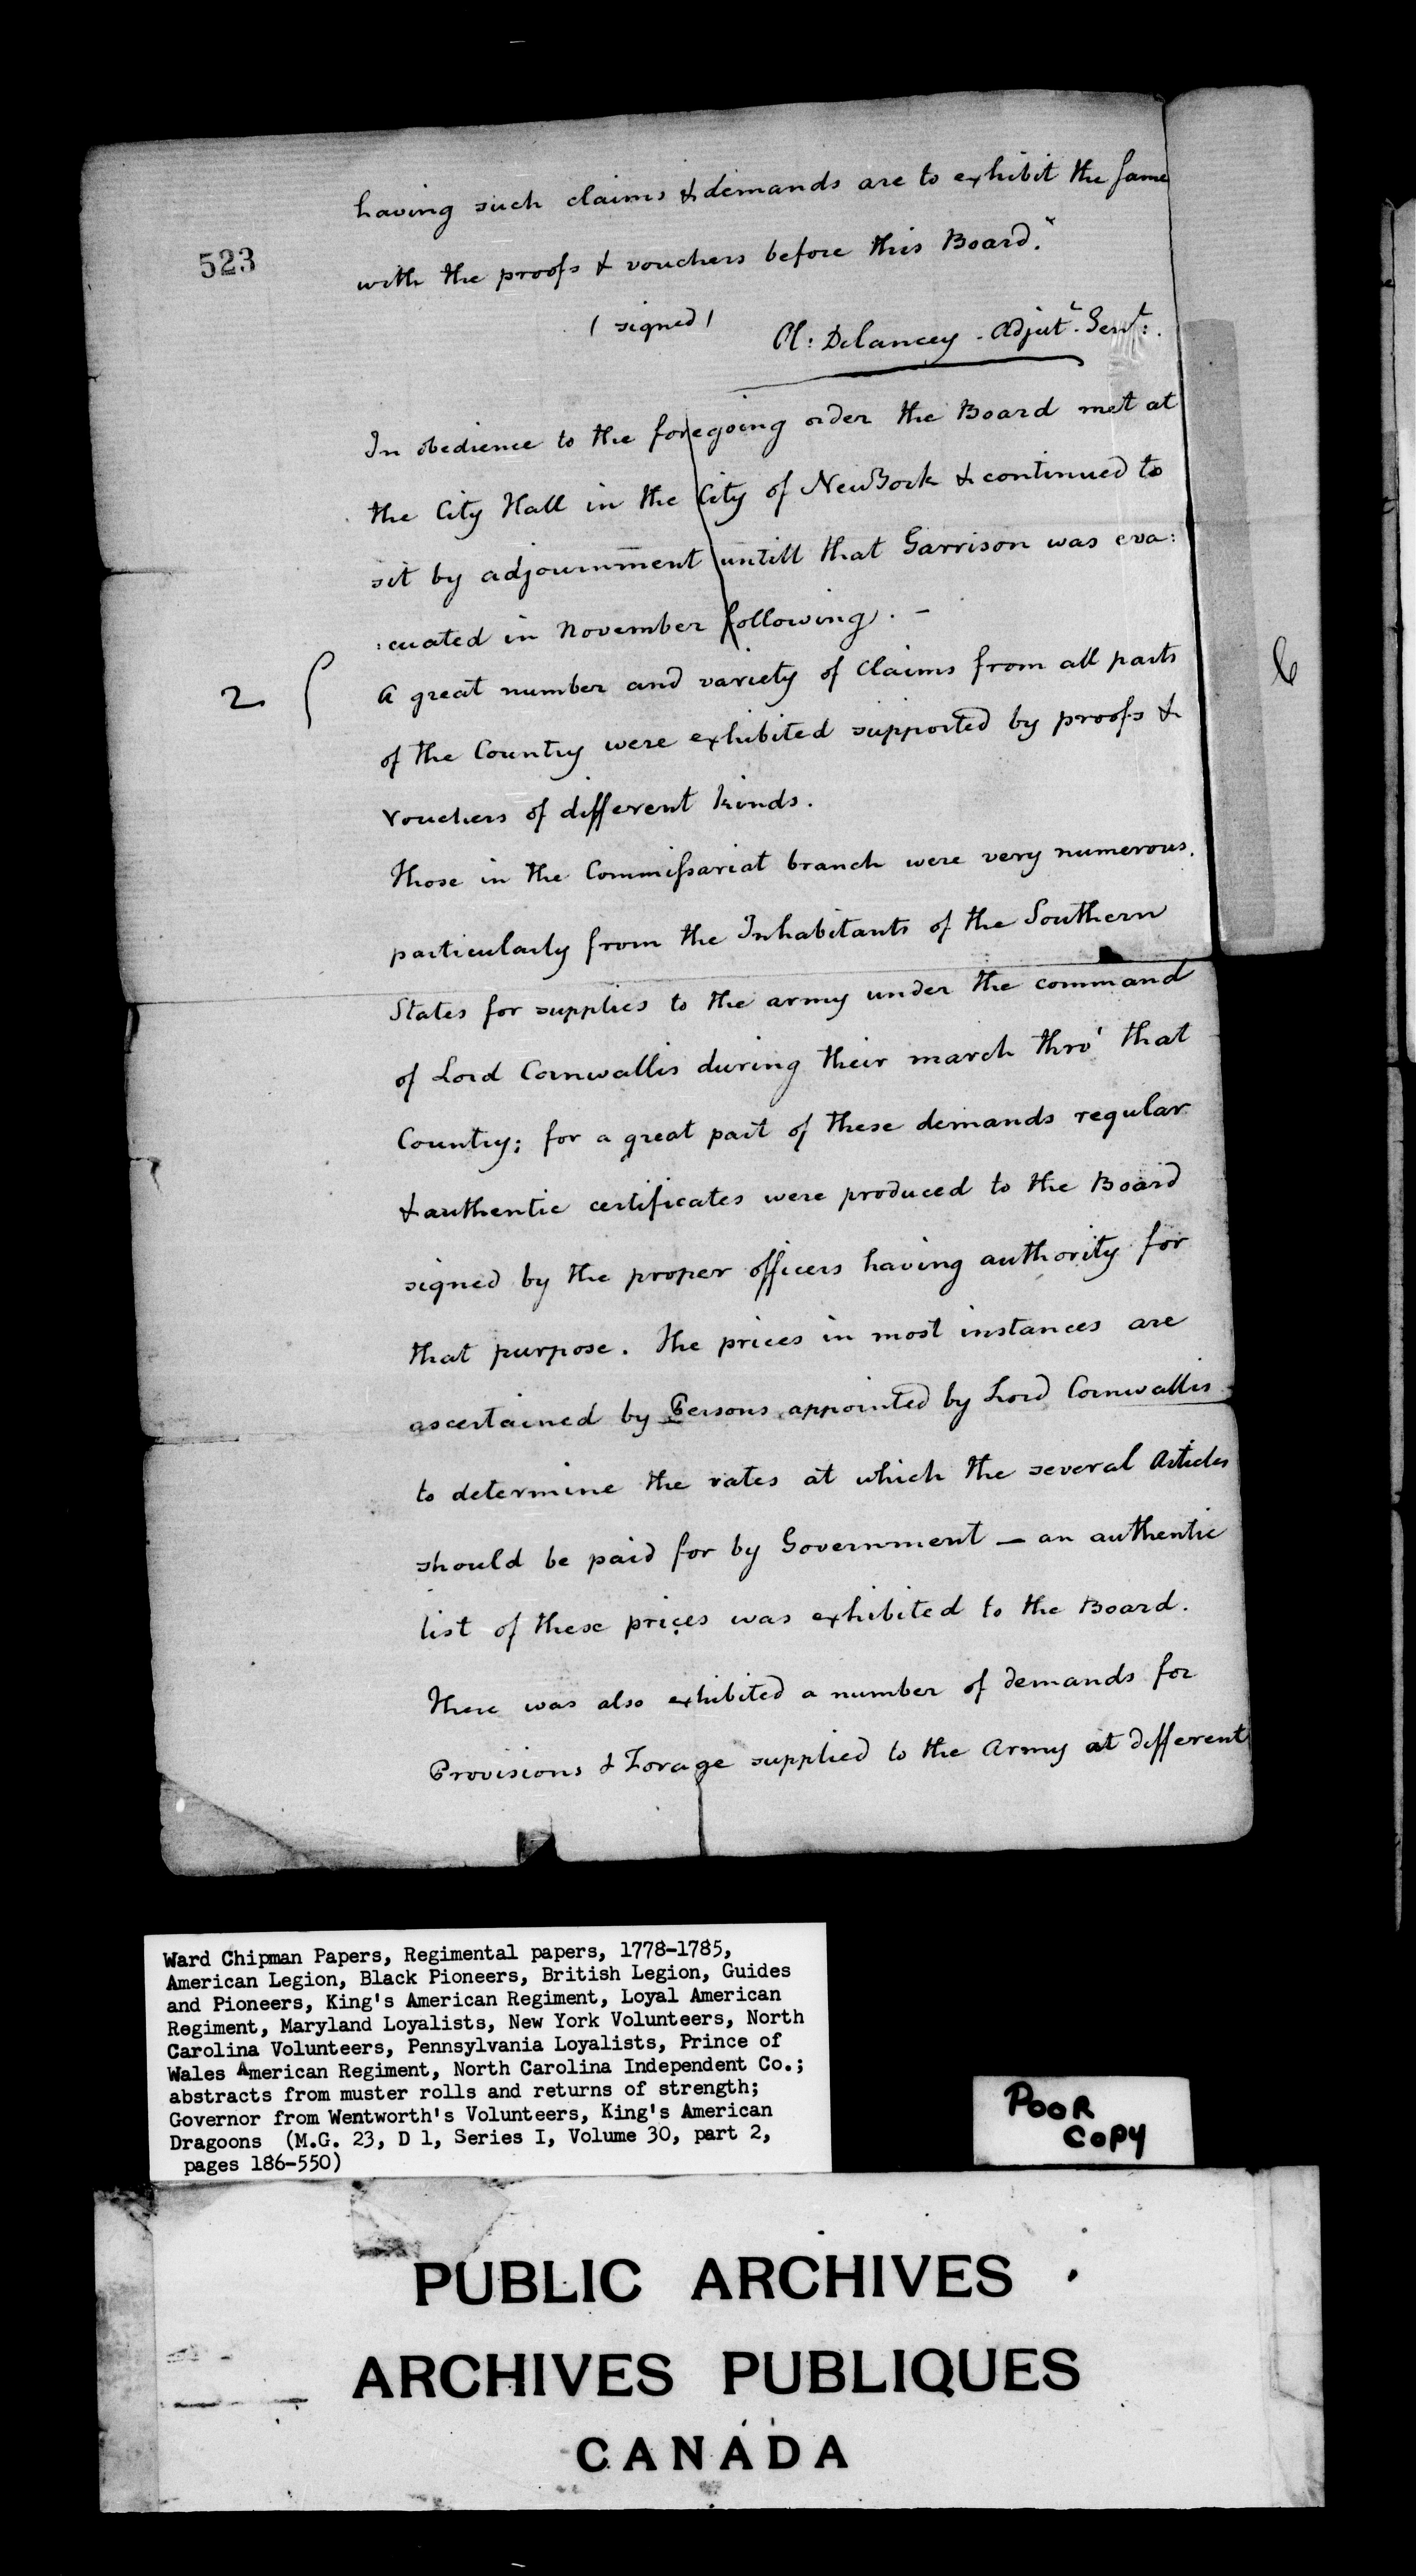 having such claims & demands are to exhibit the same
523
with the proofs & vouchers before this Board."
(signed)
Ol: Delancey - Adjut. Genl:.
In obedience to the foregoing order the Board met at
the City Hall in the City of New York & continued to
sit by adjournment untill that Garrison was eva:
:cuated in November following. -
2
A great number and variety of Claims from all parts
of the Country were exhibited supported by proofs &
vouchers of different kinds.
Those in the Commissariat branch were very numerous,
particularly from the Inhabitants of the Southern
States for supplies to the army under the command
of Lord Cornwallis during their march thro' that
Country; for a great part of these demands regular
& authentic certificates were produced to the Board
signed by the proper officers having authority for
that purpose. The prices in most instances are
ascertained by Persons appointed by Lord Cornwallis
to determine the rates at which the several Articles
should be paid for by Government — an authentic
list of these prices was exhibited to the Board.
There was also exhibited a number of demands for
Provisions & Forage supplied to the Army at different
Ward Chipman Papers, Regimental papers, 1778-1785,
American Legion, Black Pioneers, British Legion, Guides
and Pioneers, King's American Regiment, Loyal American
Regiment, Maryland Loyalists, New York Volunteers, North
Carolina Volunteers, Pennsylvania Loyalists, Prince of
Wales American Regiment, North Carolina Independent Co.;
abstracts from muster rolls and returns of strength;
Governor from Wentworth's Volunteers, King's American
Dragoons (M.G. 23, D 1, Series I, Volume 30, part 2,
pages 186-550)
POOR
COPY
PUBLIC ARCHIVES
ARCHIVES PUBLIQUES
CANADA